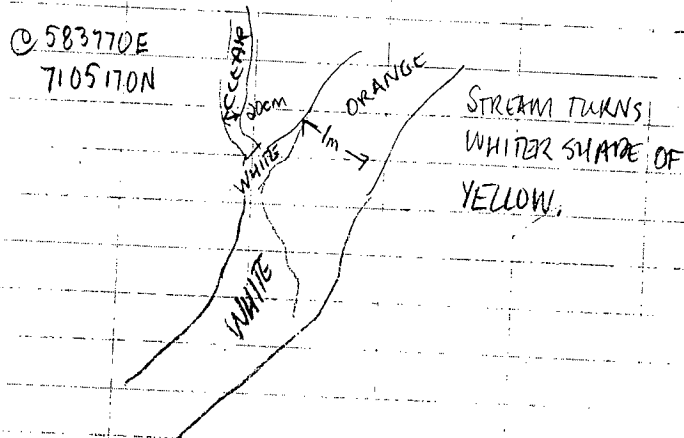 @ 583770E
7105170N
CLEAR
20cm
ORANGE
1m
WHITE
WHITE
STREAM TURNS
WHITER SHADE OF
YELLOW.